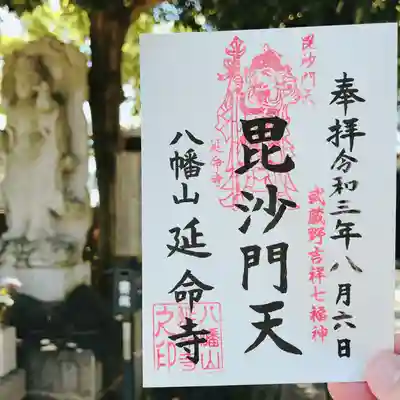 奉拝令和三年八月六日
武蔵野吉祥七福神
毘沙門天
毘沙門天
延命寺
八幡山延命寺
八幡山
之印